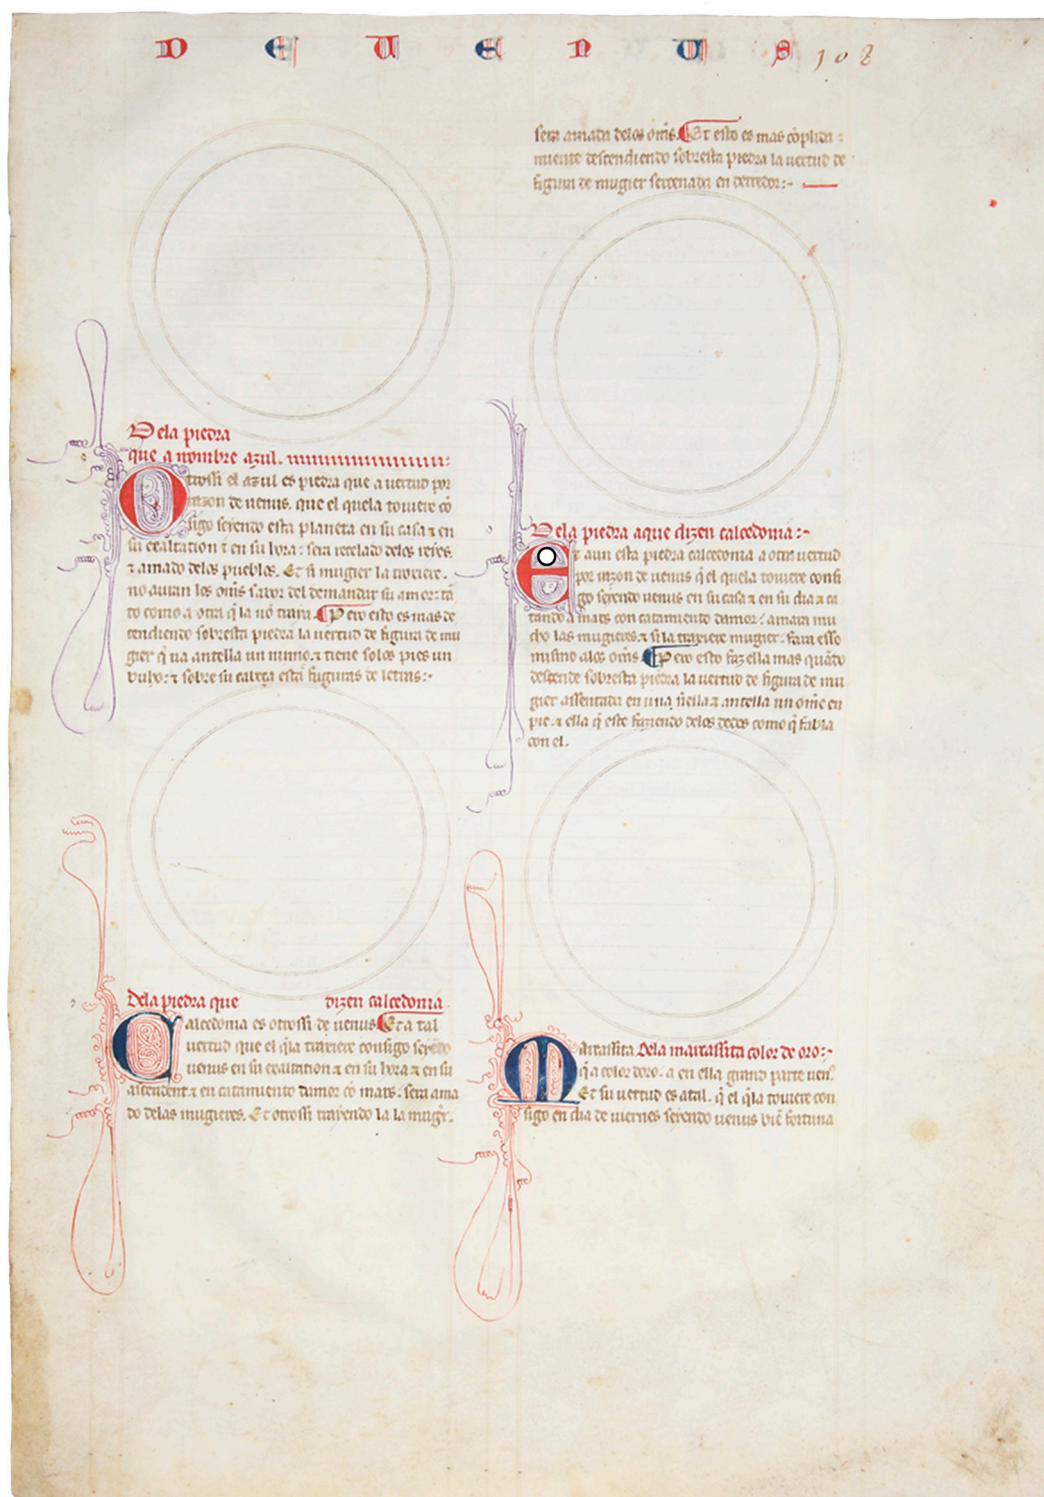 D E U E N U S 108
Dela piedra
que a nombre azul.
Otrossi el azul es piedra que a uertud por
razon de uenus. que el quela touiere cõ
sigo seyendo esta planeta en su casa ⁊ en
su exaltation ⁊ en su hora: sera recelado delos reyes.
⁊ amado delos pueblos. Et si mugier la troxiere.
no auran los om̃s sabor del demandar su amor: tã
to como a otra q̃ la nõ traya. Pero esto es mas de
cendiendo sobresta piedra la uertud de figura de mu
gier q̃ ua antella un ninno. ⁊ tiene solos pies un
⁊ sobre su cabeça esta figuras de letras:-
Dela piedra que dizen calcedonia.
Calcedonia es otrossi de uenus Et a tal
uertud que el q̃la traxiere consigo seyẽdo
uenus en su exaltation ⁊ en su hora ⁊ en su
ascendent ⁊ en catamiento damor cõ mars. sera ama
do delas mugieres. Et otrossi trayendo la la mugr̃.
sera amada delos om̃s. Et esto es mas cõplida
miente descendiendo sobresta piedra la uertud de
figura de mugier en derredor:-
Dela piedra aque dizen calcedonia:-
Et aun esta piedra calcedonia a otra uertud
por razon de uenus q̃ el quela touiere consi
go seyendo uenus en su casa ⁊ en su dia ⁊ ca
tando a mars con catamiento damor: amara mu
cho las mugieres. ⁊ si la traxiere mugier. fara esso
mismo alos om̃s. Pero esto faz ella mas quãdo
descende sobresta piedra la uertud de figura de mu
gier assentada en una siella ⁊ antella un om̃e en
pie. ⁊ ella q̃ este faziendo delos dedos como q̃ fabla
con el.
Marcassita Dela marcassita color de oro:-
q̃ a color doro. a en ella grand parte uen⁹.
Et su uertud es atal. q̃ el q̃la touiere con
sigo en dia de uiernes seyendo uenus biẽ fortuna